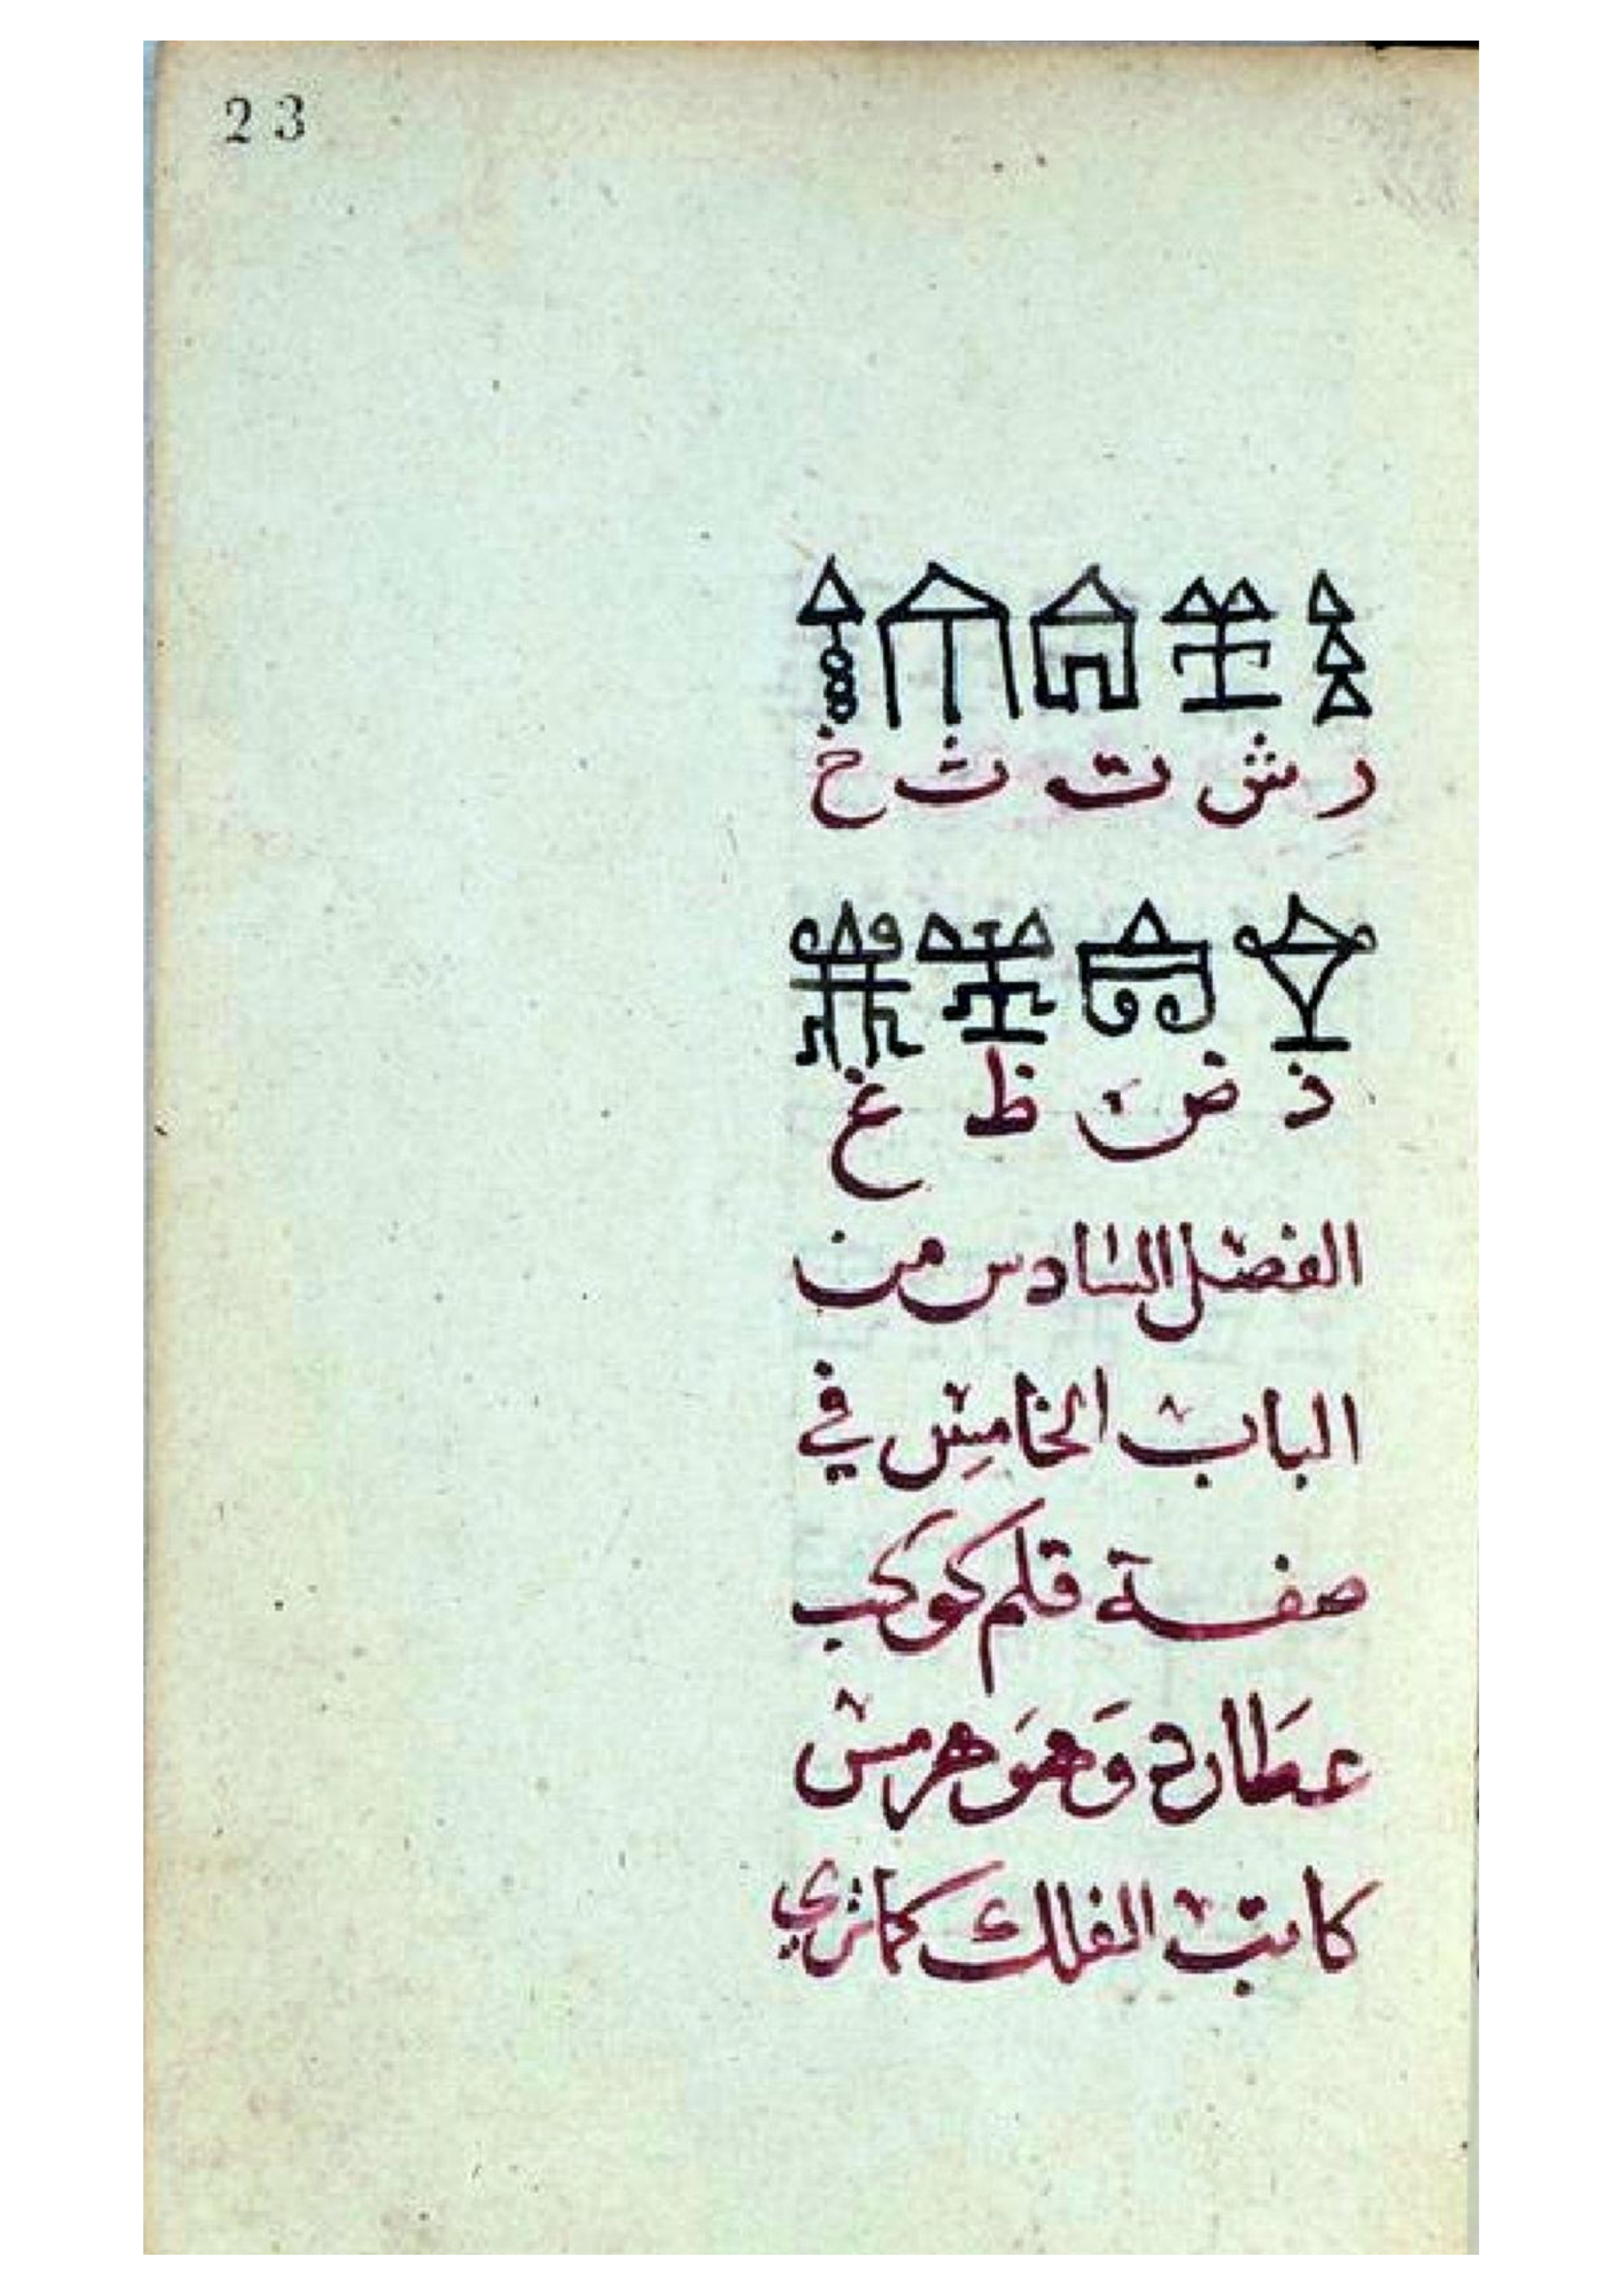 23
ر ش ت ث خ
ذ ض ظ غ
الفصل السادس من
الباب الخامس في
صفة قلم كوكب
عطارد وَهوَ هرمس
كاتب الفلك كما تري